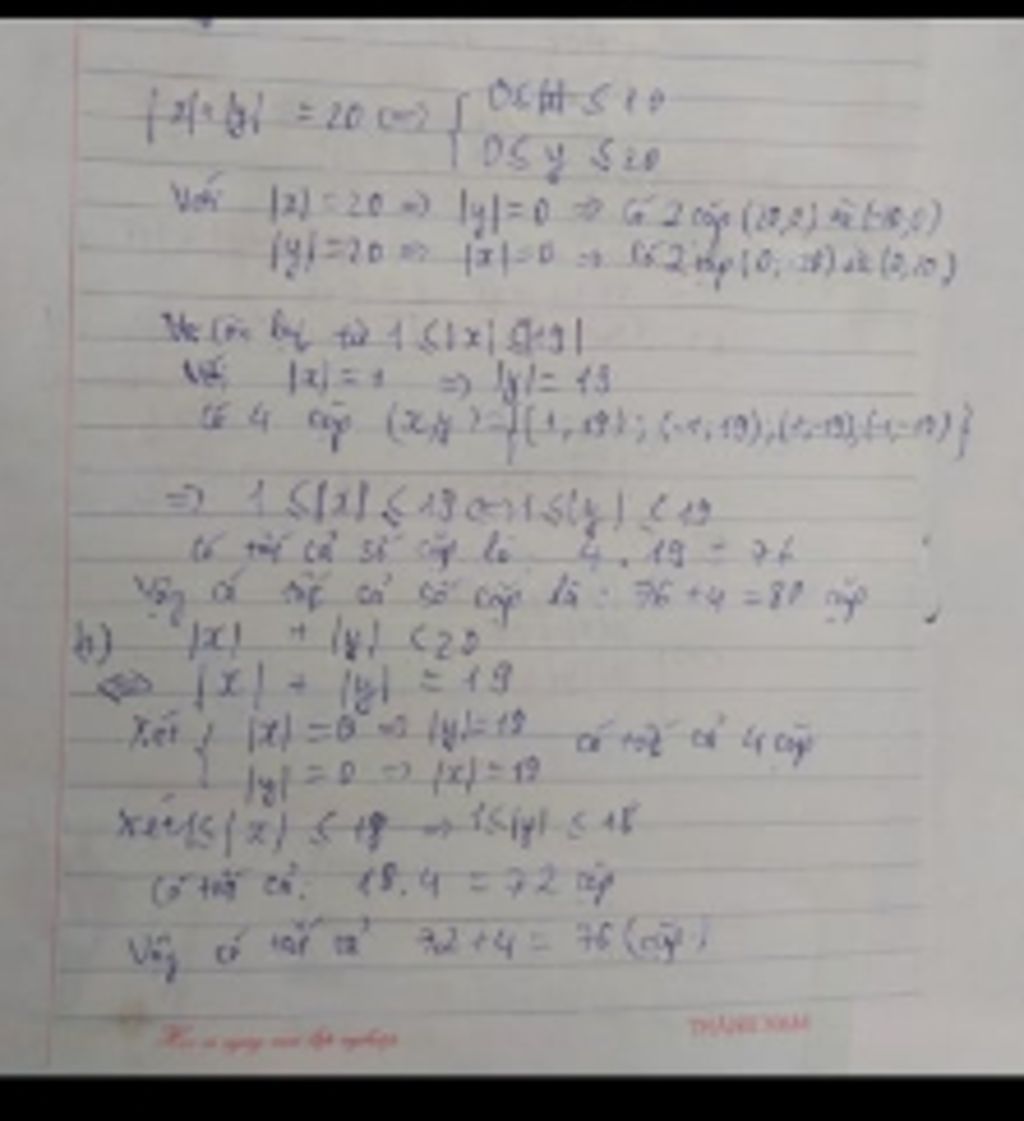 |x|+|y| = 20 <=> { 0≤|x| ≤ 20
0≤ y ≤ 20
Với |x| = 20 => |y| = 0 => Có 2 cặp (20,0) và (-20,0)
|y| = 20 => |x| = 0 => Có 2 cặp (0,-20) và (0,20)
từ 1 ≤ |x| ≤ |19|
Với |x| = 1 => |y| = 19
Có 4 cặp (x,y) = {(1,19); (-1,19); (1,-19); (-1,-19)}
=> 1 ≤ |x| ≤ 19 <=> 1 ≤ |y| ≤ 19
Có tất cả số cặp là: 4 . 19 = 76
Vậy có tất cả số cặp là: 76 + 4 = 80 cặp
b) |x| + |y| < 20
<=> |x| + |y| = 19
Xét { |x| = 0 => |y| = 19 có tất cả 4 cặp
|y| = 0 => |x| = 19
Xét 1 ≤ |x| ≤ 18 => 1 ≤ |y| ≤ 18
Có tất cả: 18 . 4 = 72 cặp
Vậy có tất cả 72 + 4 = 76 (cặp)